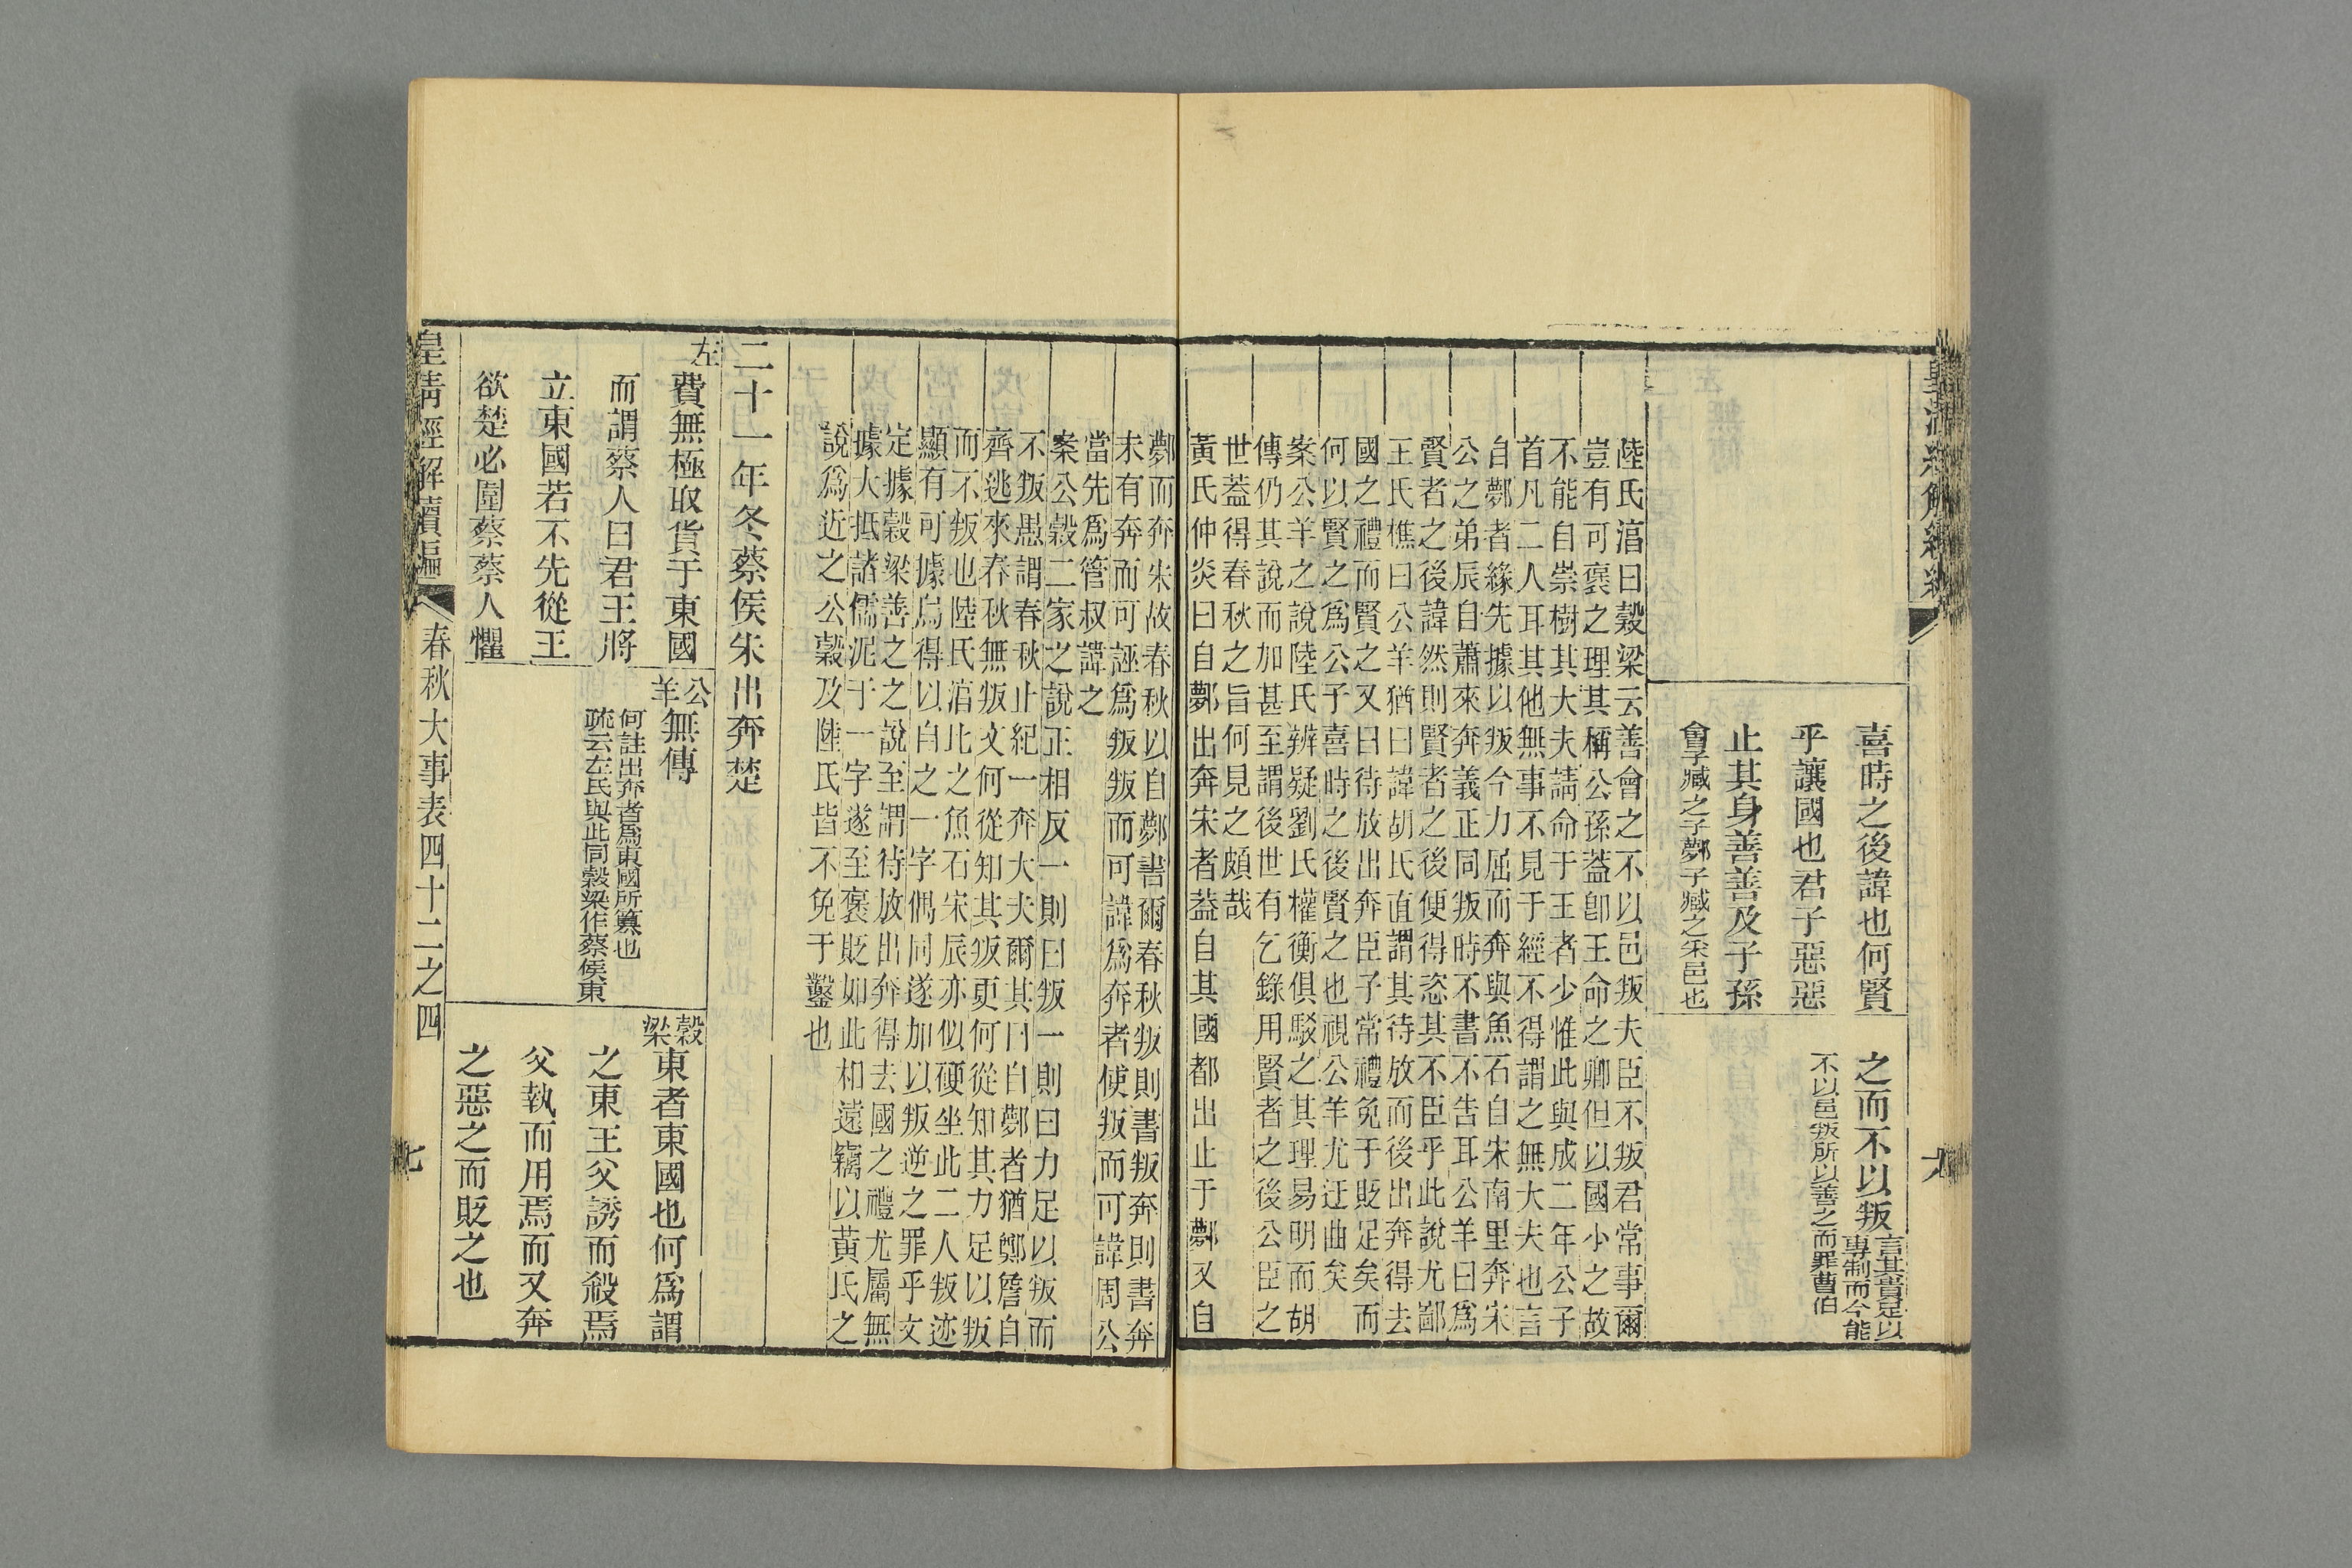 喜時之後諱也何賢
乎讓國也君子惡惡
止其身善善及子孫
會子臧之子鄸子臧之采邑也
之而不以叛
言其貴足以
專制而今能
不以邑叛所以善之而罪曹伯
陸氏淳曰穀梁云善會之不以邑叛夫臣不叛君常事爾
豈有可褒之理其稱公孫葢卽王命之卿但以國小之故
不能自崇樹其大夫請命于王者少惟此與成二年公子
首凡二人耳其他無事不見于經不得謂之無大夫也言
自鄸者緣先據以叛今力屈而奔與魚石自宋南里奔宋
公之弟辰自蕭來奔義正同叛時不書不告耳公羊曰爲
賢者之後諱然則賢者之後便得恣其不臣乎此說尤鄙
王氏樵曰公羊猶曰諱胡氏直謂其待放而後出奔得去
國之禮而賢之又曰待放出奔臣子常禮免于貶足矣而
何以賢之爲公子喜時之後賢之也視公羊尤迂曲矣
案公羊之說陸氏辨疑劉氏權衡俱駁之其理易明而胡
傳仍其說而加甚至謂後世有乞錄用賢者之後公臣之
世葢得春秋之旨何見之頗哉
黃氏仲炎曰自鄸出奔宋者葢自其國都出止于鄸又自
鄸而奔宋故春秋以自鄸書爾春秋叛則書叛奔則書奔
未有奔而可誣爲叛叛而可諱爲奔者使叛而可諱周公
當先爲管叔諱之
案公穀二家之說正相反一則曰叛一則曰力足以叛而
不叛愚謂春秋止紀一奔大夫爾其曰自鄸者猶鄭詹自
齊逃來春秋無叛文何從知其叛更何從知其力足以叛
而不叛也陸氏淳比之魚石宋辰亦似硬坐此二人叛迹
顯有可據烏得以自之一字偶同遂加以叛逆之罪乎文
定據穀梁善之之說至謂待放出奔得去國之禮尤屬無
據大抵諸儒泥于一字遂至褒貶如此相遠竊以黃氏之
說爲近之公穀及陸氏皆不免于鑿也
二十一年冬蔡侯朱出奔楚
左
費無極取貨于東國
而謂蔡人曰君王將
立東國若不先從王
欲楚必圍蔡蔡人懼
公羊
無傳
何註出奔者爲東國所簒也
疏云左氏與此同穀梁作蔡侯東
穀梁
東者東國也何爲謂
之東王父誘而殺焉
父執而用焉而又奔
之惡之而貶之也
皇清經解續編
春秋大事表四十二之四
七